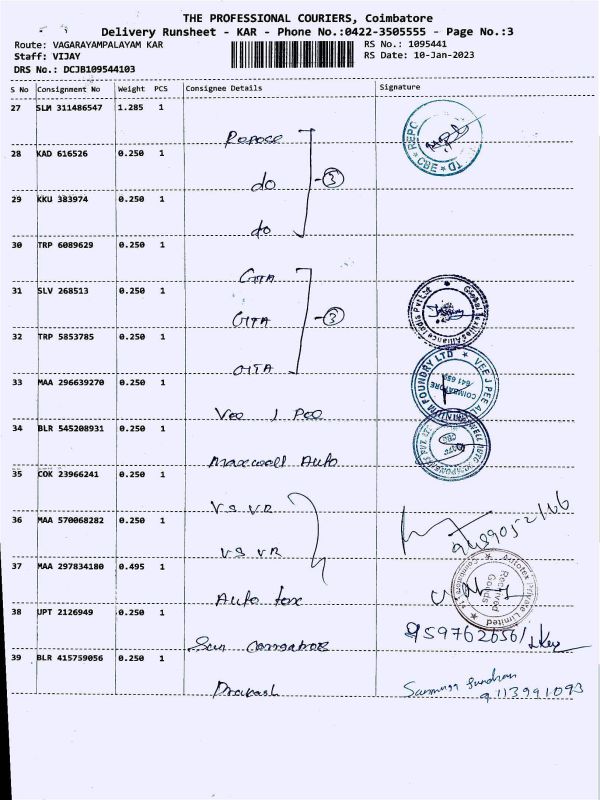 THE PROFESSIONAL COURIERS, Coimbatore
Delivery Runsheet - KAR - Phone No.:0422-3505555 - Page No.:3
Route: VAGARAYAMPALAYAM KAR
RS No.: 1095441
Staff: VIJAY
RS Date: 10-Jan-2023
DRS No.: DCJB109544103
S No Consignment No Weight PCS Consignee Details Signature
27 SLM 311486547 1.285 1
28 KAD 616526 0.250 1
do
3
29 KKU 383974 0.250 1
do
30 TRP 6089629 0.250 1
GITA
31 SLV 268513 0.250 1
GITA
3
32 TRP 5853785 0.250 1
GITA
33 MAA 296639270 0.250 1
Vee J Pee
34 BLR 545208931 0.250 1
Maxwell Auto
35 COK 23966241 0.250 1
VS VR
36 MAA 570068282 0.250 1
VS VR
37 MAA 297834180 0.495 1
Auto tex
Autotex Private Limited
Received Goods
38 UPT 2126949 0.250 1
39 BLR 415759056 0.250 1
Prakash
9113991093